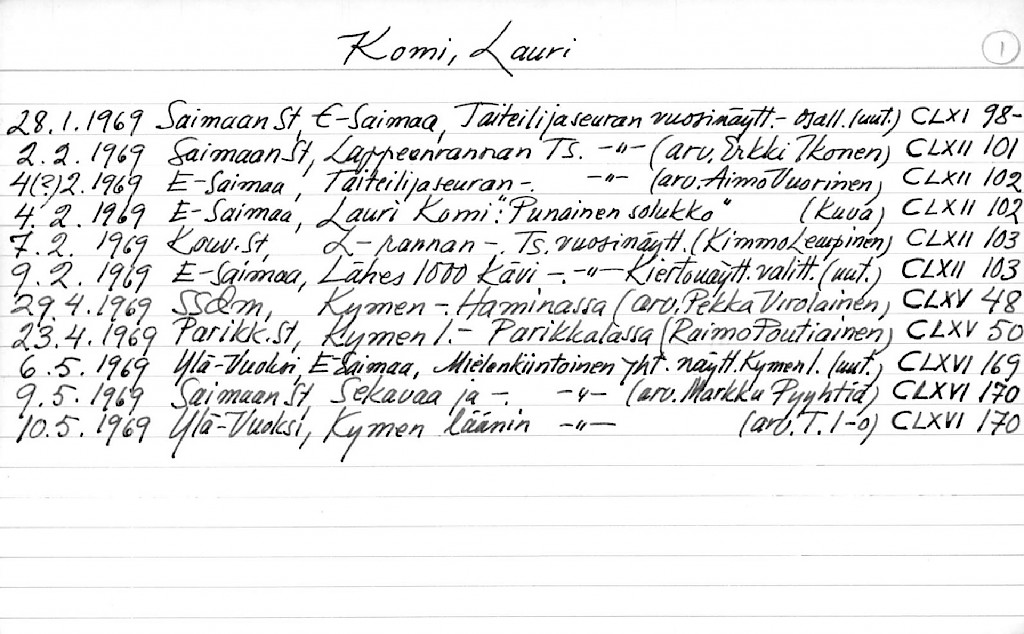 Komi, Lauri 1
28.1.1969 Saimaan St, E-Saimaa, Taiteilijaseuran vuosinäytt.- osall. (uut.) CLXI 98-
2.2.1969 Saimaan St, Lappeenrannan Ts. -"- (arv. Erkki Ikonen) CLXII 101
4(?)2.1969 E-Saimaa, Taiteilijaseuran -. -"- (arv. Aimo Vuorinen) CLXII 102
4.2.1969 E-Saimaa, Lauri Komi: "Punainen solukko" (Kuva) CLXII 102
7.2.1969 Kouv.St, L-rannan -. Ts. vuosinäytt. (Kimmo Lempinen) CLXII 103
9.2.1969 E-Saimaa, Lähes 1000 kävi -. -"- Kiertonäytt. valitt. (uut.) CLXII 103
29.4.1969 Kymen -. Haminassa (arv. Pekka Virolainen) CLXV 48
23.4.1969 Parikk.St, Kymen l. - Parikkalassa (Raimo Poutiainen) CLXV 50
6.5.1969 Ylä-Vuoksi, E-Saimaa, Mielenkiintoinen yht. näytt. Kymen l. (uut.) CLXVI 169
9.5.1969 Saimaan St Sekavaa ja -. -"- (arv. Markku Pyyhtiä) CLXVI 170
10.5.1969 Ylä-Vuoksi, Kymen läänin -"- (arv. T. I-o) CLXVI 170